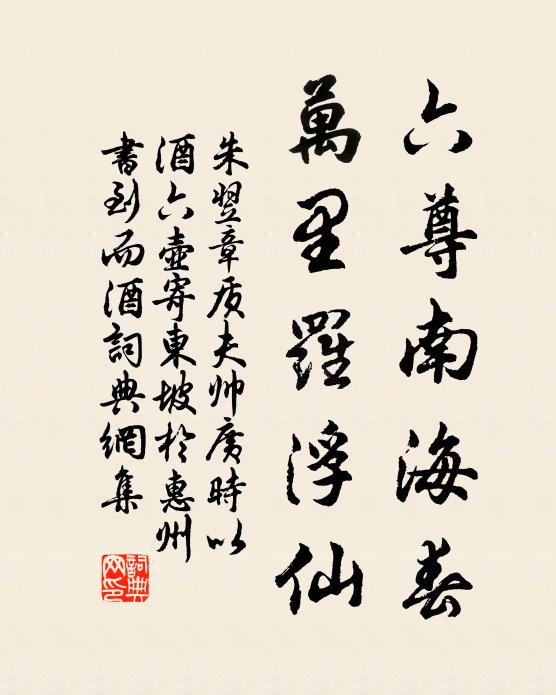 六尊南海春
萬里羅浮仙
朱翌章质夫帅廣時以
酒六壺寄東坡於惠州
書到而酒詞典網集
詞典
网印